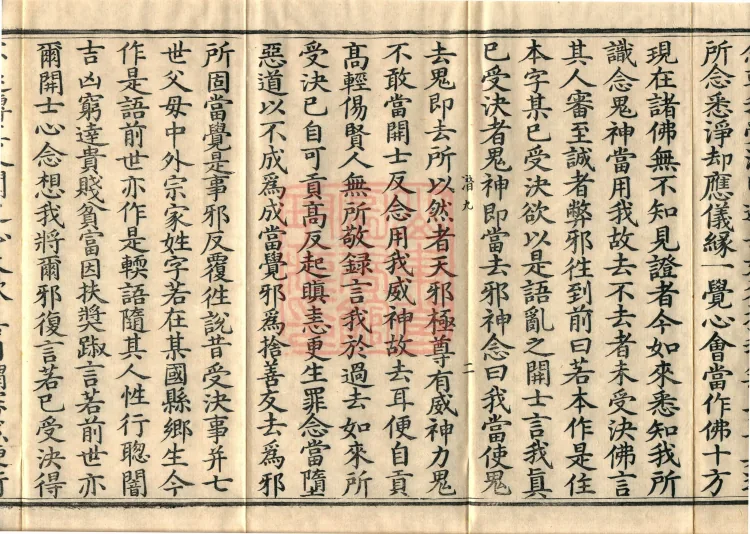 所念悉淨却應儀緣一覺心會當作佛十方
現在諸佛無不知見證者今如來悉知我所
識念鬼神當用我故去不去者未受決佛言
其人審至誠者弊邪徃到前曰若本作是住
本字某已受決欲以是語亂之開士言我眞
已受決者鬼神即當去邪神念曰我當使鬼
潛九
二
去鬼即去所以然者天邪極尊有威神力鬼
不敢當開士反念用我威神故去耳便自貢
高輕傷賢人無所敬録言我於過去如來所
受決已自可貢高反起瞋恚更生罪念當墮
惡道以不成爲成當覺邪爲捨善友去爲邪
所固當覺是事邪反覆徃說昔受決事并七
世父母中外宗家姓字若在某國縣鄉生今
作是語前世亦作是輭語隨其人性行聦闇
吉凶窮達貴賤貧富因扶奬踧言若前世亦
爾開士心念想我將爾邪復言若已受決得